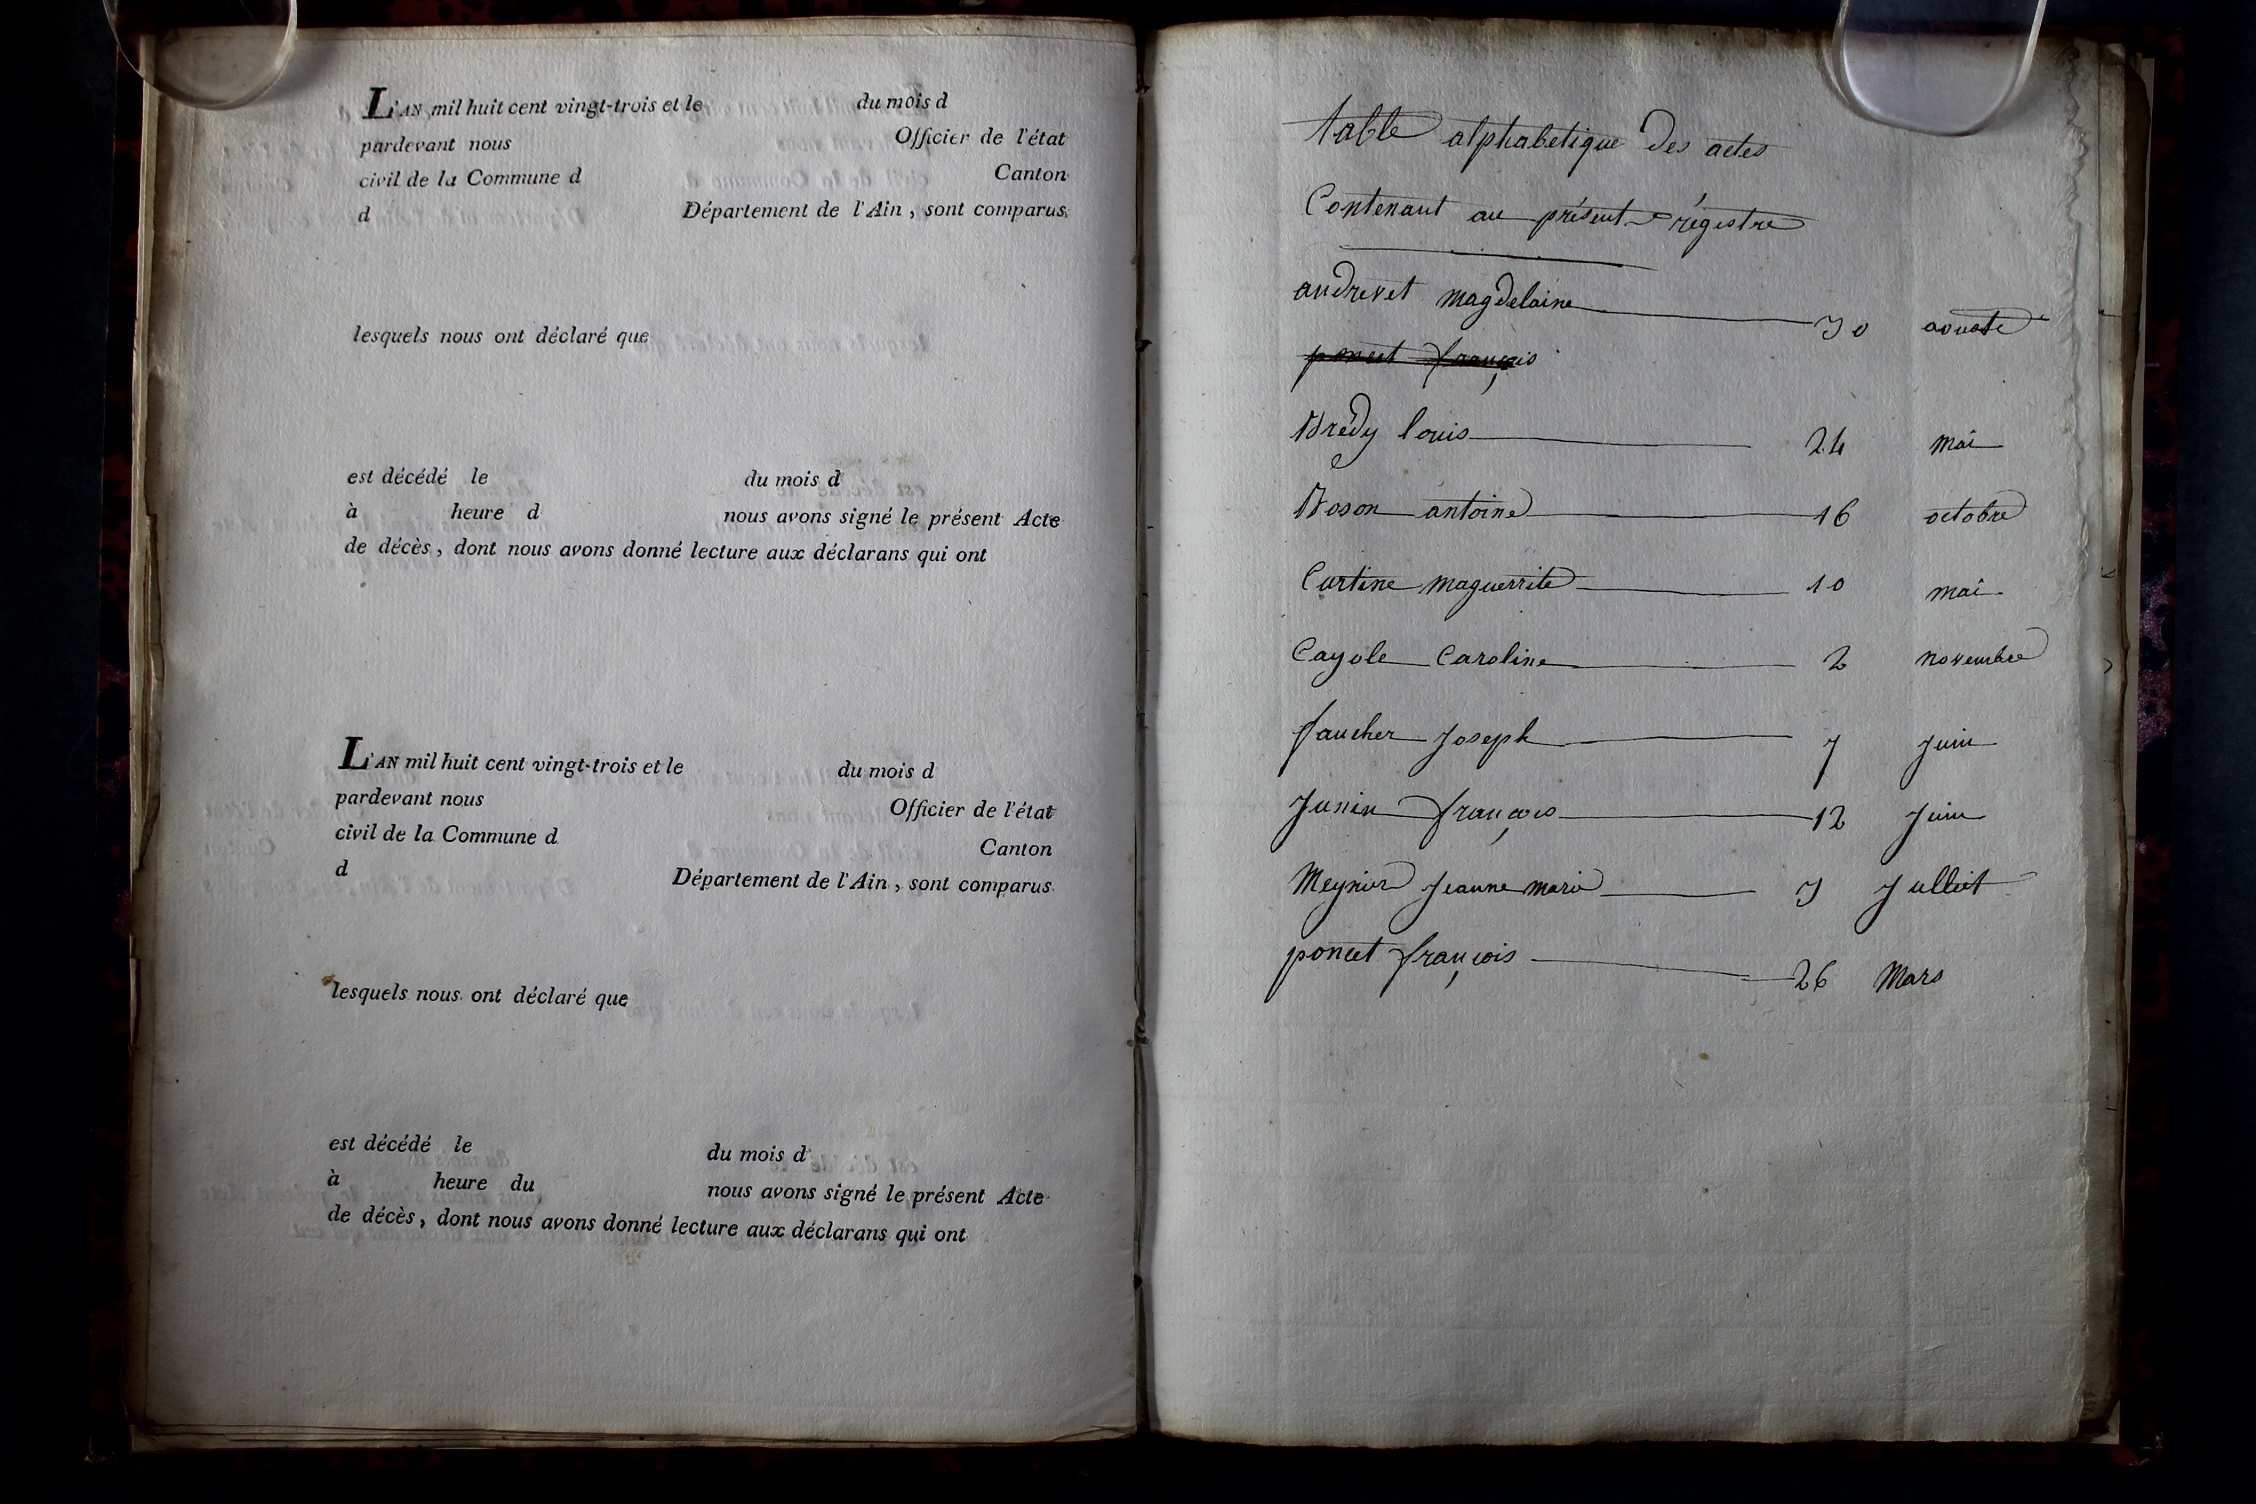 L'AN mil huit cent vingt-trois et le du mois d
pardevant nous Officier de l'état
civil de la Commune d Canton
d Département de l'Ain, sont comparus
lesquels nous ont déclaré que
est décédé le du mois d
à heure d nous avons signé le présent Acte
de décès, dont nous avons donné lecture aux déclarans qui ont
L'AN mil huit cent vingt-trois et le du mois d
pardevant nous Officier de l'état
civil de la Commune d Canton
d Département de l'Ain, sont comparus
lesquels nous ont déclaré que
est décédé le du mois d
à heure du nous avons signé le présent Acte
de décès, dont nous avons donné lecture aux déclarans qui ont
table alphabetique des actes
Contenant au présent régistre
andrevet magdelaine 30 aouste
poncet françois
Brédy louis 24 mai
Boson antoine 16 octobre
Curtine maguerrite 10 mai
Cayole Caroline 2 novembre
faucher Joseph 7 Juin
Junin françois 12 Juin
Meynier Jeanne marie Julliet
poncet françois 26 Mars